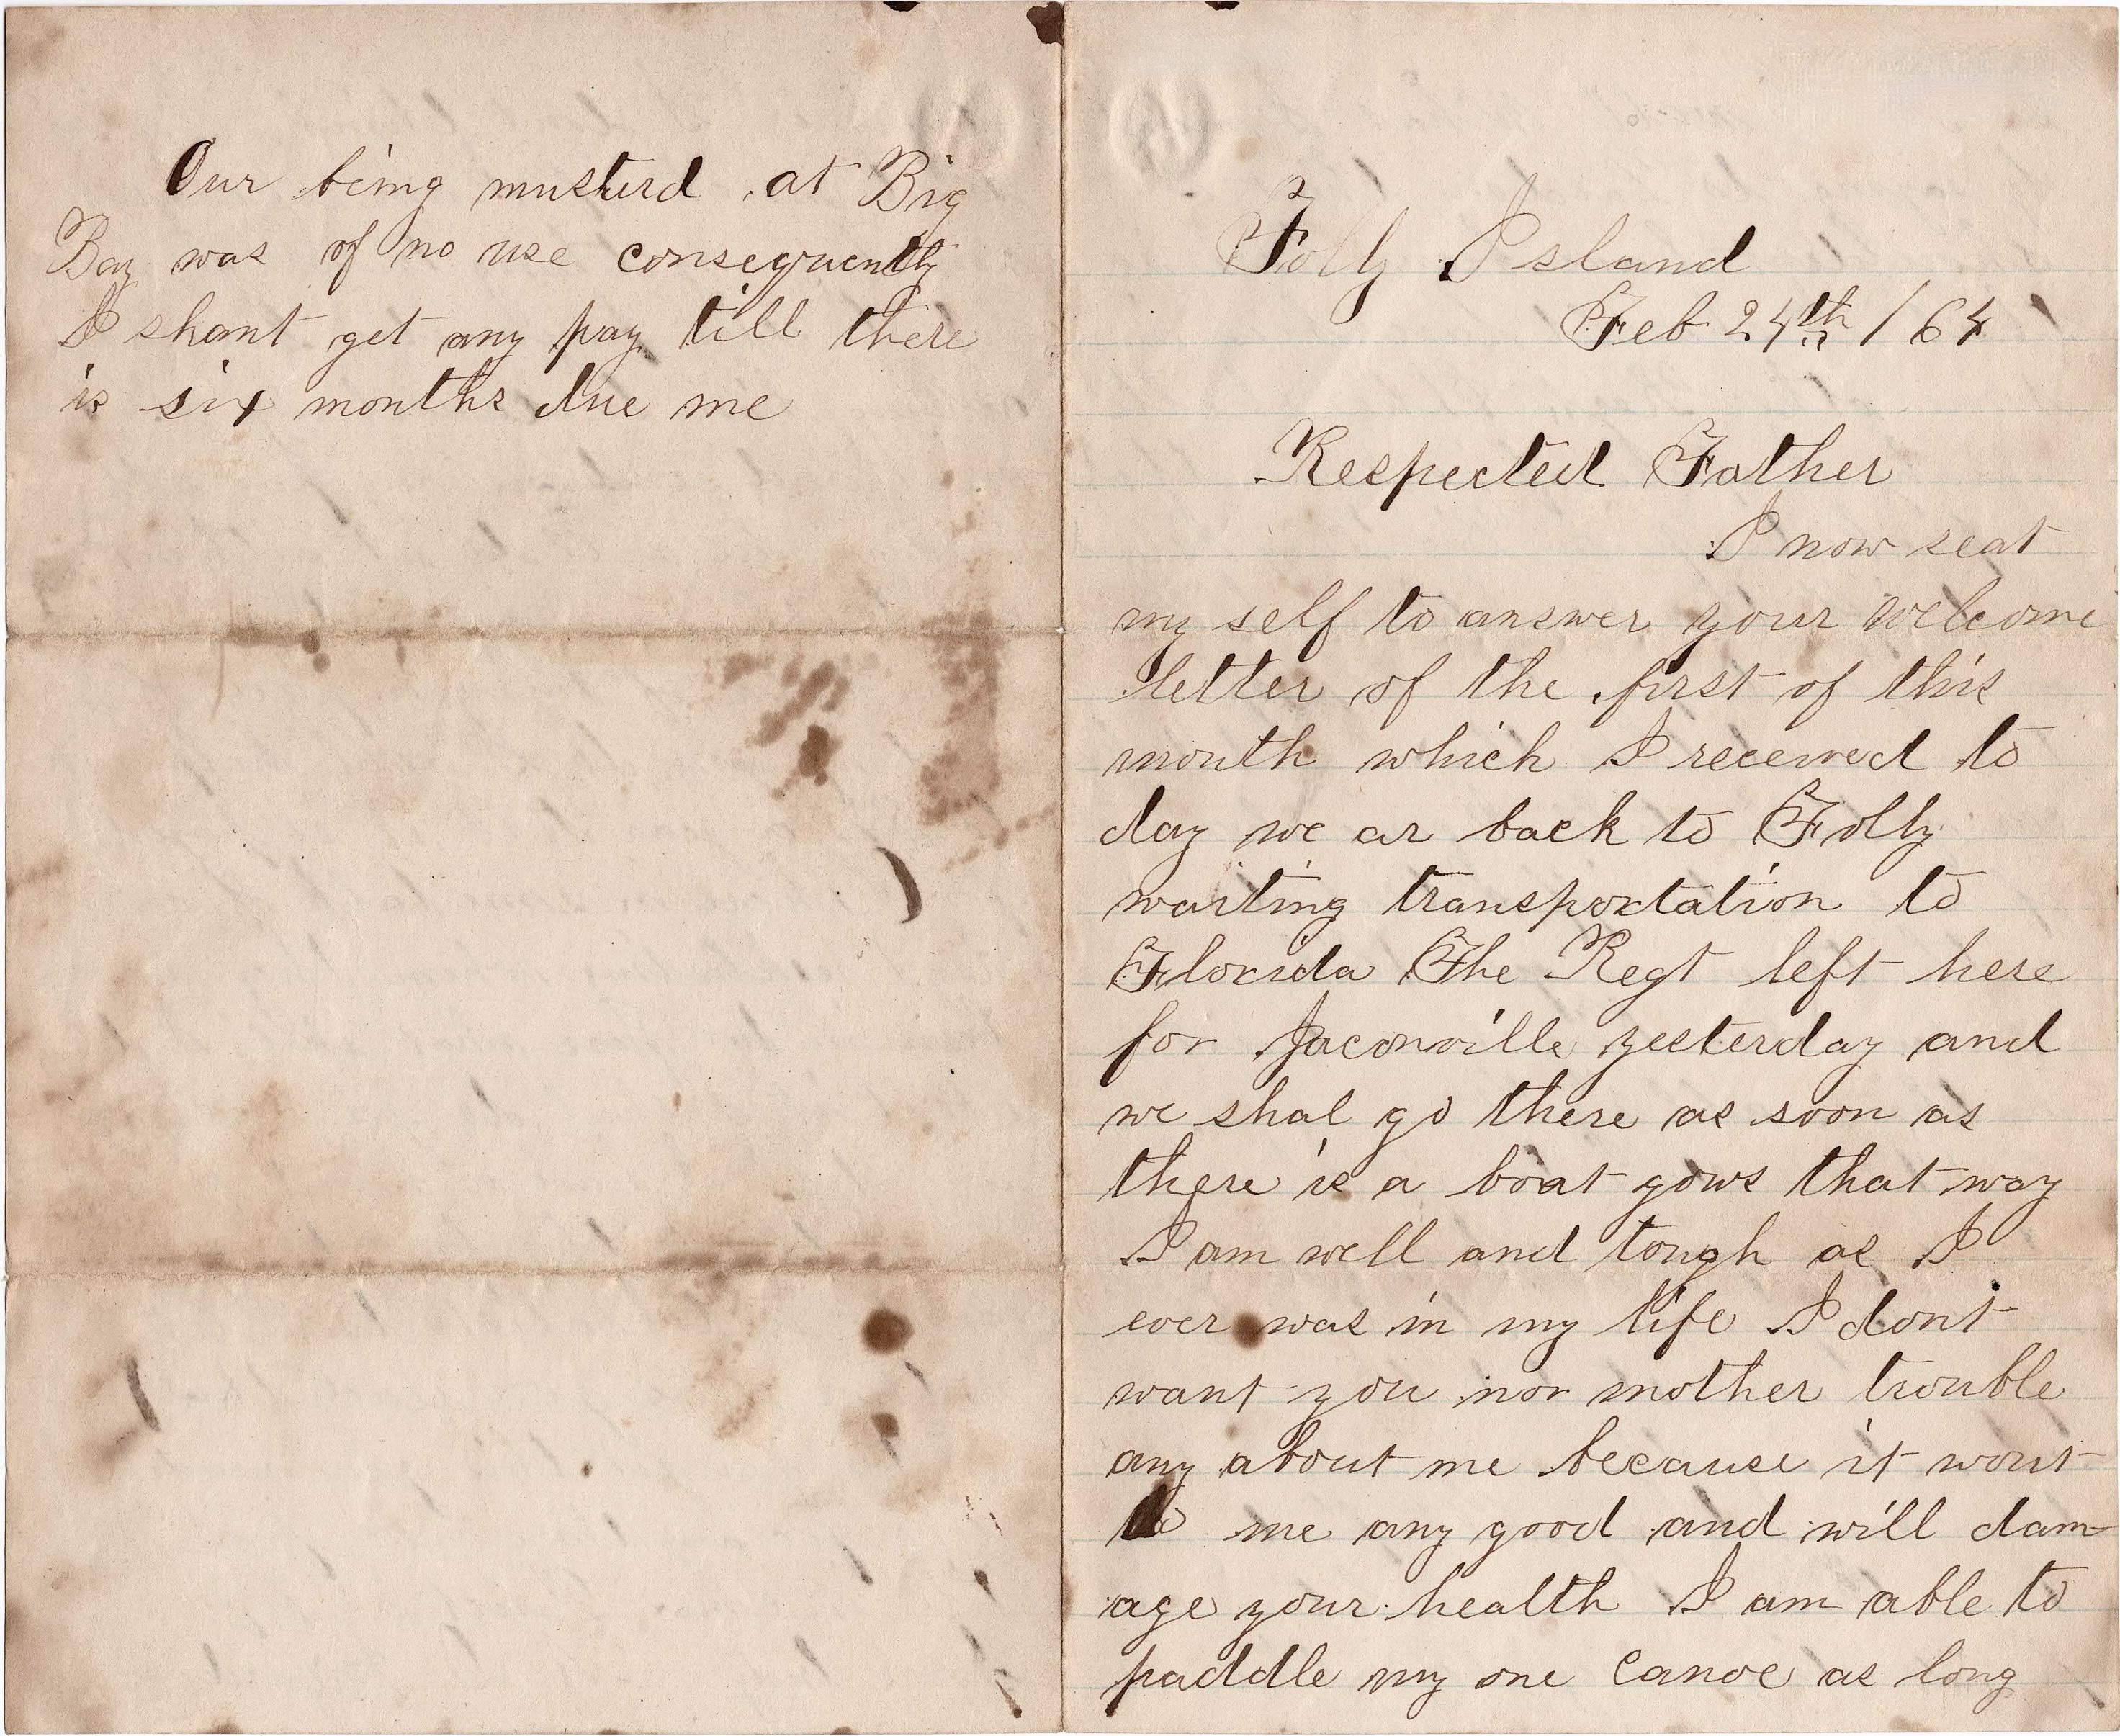 Our being musterd at Big
Bay was of no use consequently
I shant get any pay till there
is six months due me
Folly Island
Feb 24th / 64
Respected Father
I now seat
my self to answer your welcome
letter of the first of this
month which I received to
day we ar back to Folly
waiting transportation to
Florida The Regt left here
for Jaconville yesterday and
we shal go there as soon as
there is a boat gows that way
I am well and tough as I
ever was in my life I dont
want you nor mother trouble
any about me because it wont
do me any good and will dam-
age your health I am able to
paddle my one canoe as long